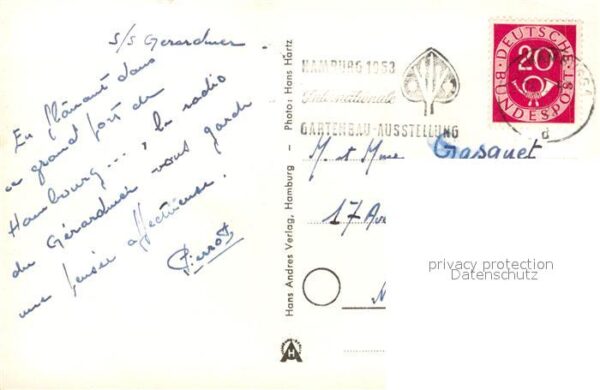 s/s Gerardmer
En flânant dans
ce grand port de
Hambourg..., le radio
du Gérardmer vous garde
une pensée affectueuse.
Pierrot
Hans Andres Verlag, Hamburg - Photo: Hans Hartz
HAMBURG 1953
Internationale
GARTENBAU-AUSSTELLUNG
DEUTSCHE
20
BUNDESPOST
d
M. et Mme Gasquet
17 Av
N
privacy protection
Datenschutz
H